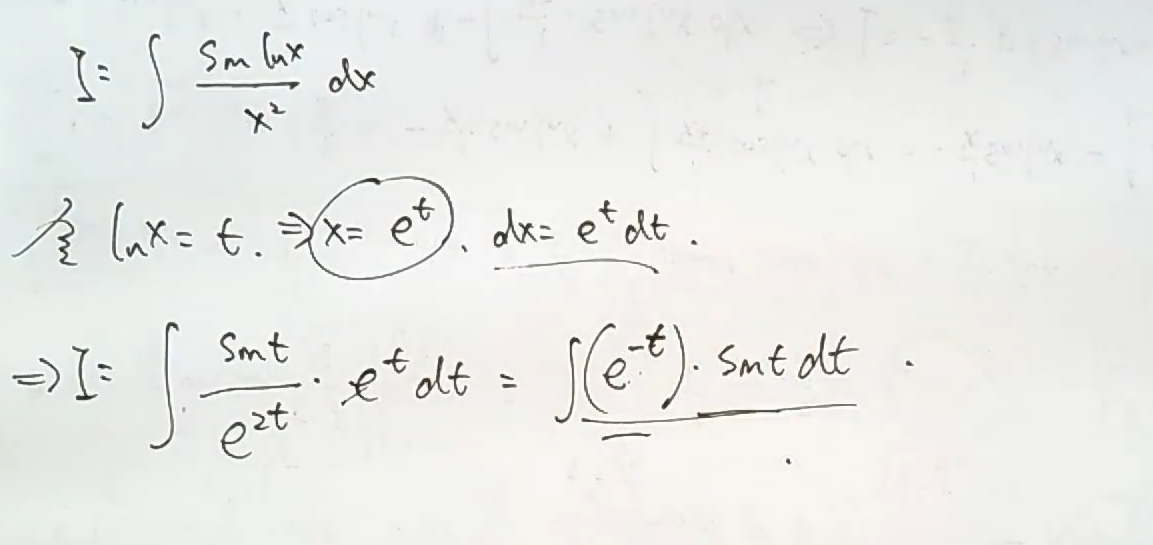 I = ∫ sin lnx / x² dx
令 lnx = t. ⇒ x = e^t. dx = e^t dt.
⇒ I = ∫ sint / e^{2t} · e^t dt = ∫(e^{-t}) · sint dt.